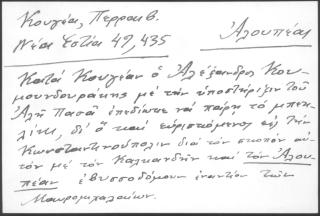 Κουγέας, Περραιβ.
Νέα Εστία 49, 435
Ἀλουπέας
Κατά Κουγέαν ὁ Ἀλέξανδρος Κου-
μουνδουράκης μέ τήν ὑποστήριξιν τοῦ
Ἀλῆ Πασᾶ ἐπεδίωκε νά πάρῃ τό μπεη-
λίκι, δι' ὅ καί εὑρισκόμενος εἰς τήν
Κωνσταντινούπολιν διά τόν σκοπόν αὐ-
τόν μέ τόν καί τόν Ἀλου-
πέαν ἐβυσσοδόμουν ἐναντίον τῶν
Μαυρομιχαλαίων.